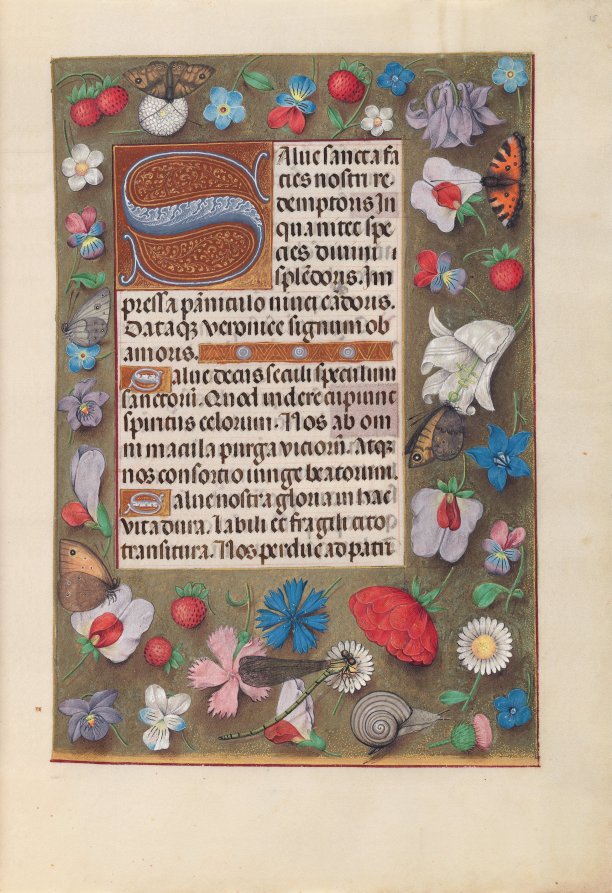 15
Salve sancta fa
cies nostri re
demptoris In
qua nitet spe
cies divini
splēdoris. Im
pressa pāniculo nivei cādoris.
Dataq̢ veronice signum ob
amoris.
Salve decus seculi speculum
sanctorū. Quod videre cupiunt
spiritus celorum. Nos ab om
ni macula purga viciorū. Atq̢
nos consortio iunge beatorum.
Salve nostra gloria in hac
vita dura. Labili et fragili cito
transitura. Nos perduc ad patri